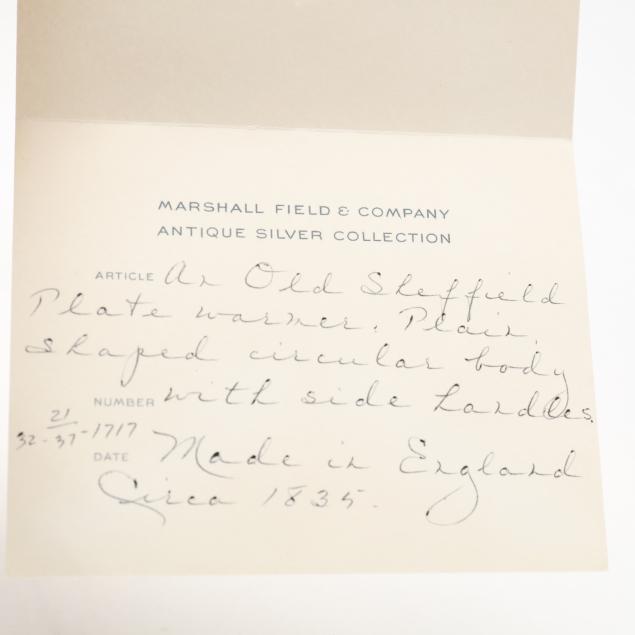 MARSHALL FIELD & COMPANY
ANTIQUE SILVER COLLECTION
ARTICLE An Old Sheffield
Plate warmer. Plain,
shaped circular body
NUMBER with side handles.
21
32-37-1717
DATE Made in England
Circa 1835.